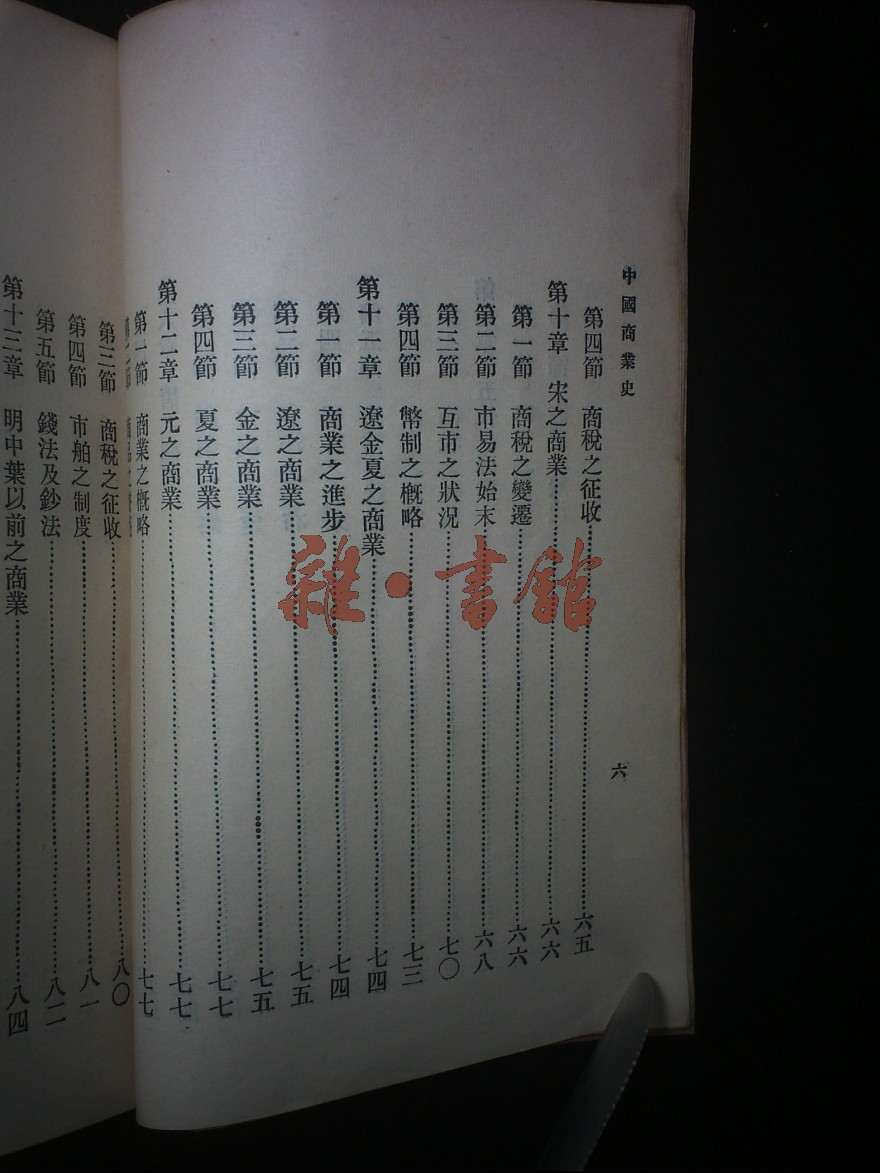 中國商業史
六
第四節 商稅之征收……六五
第十章 宋之商業……六六
第一節 商稅之變遷……六六
第二節 市易法始末……六八
第三節 互市之狀況……七〇
第四節 幣制之概略……七三
第十一章 遼金夏之商業……七四
第一節 商業之進步……七四
第二節 遼之商業……七五
第三節 金之商業……七五
第四節 夏之商業……七七
第十二章 元之商業……七七
第一節 商業之概略……七七
第三節 商稅之征收……八〇
第四節 市舶之制度……八一
第五節 錢法及鈔法……八二
第十三章 明中葉以前之商業……八四
雜·書館